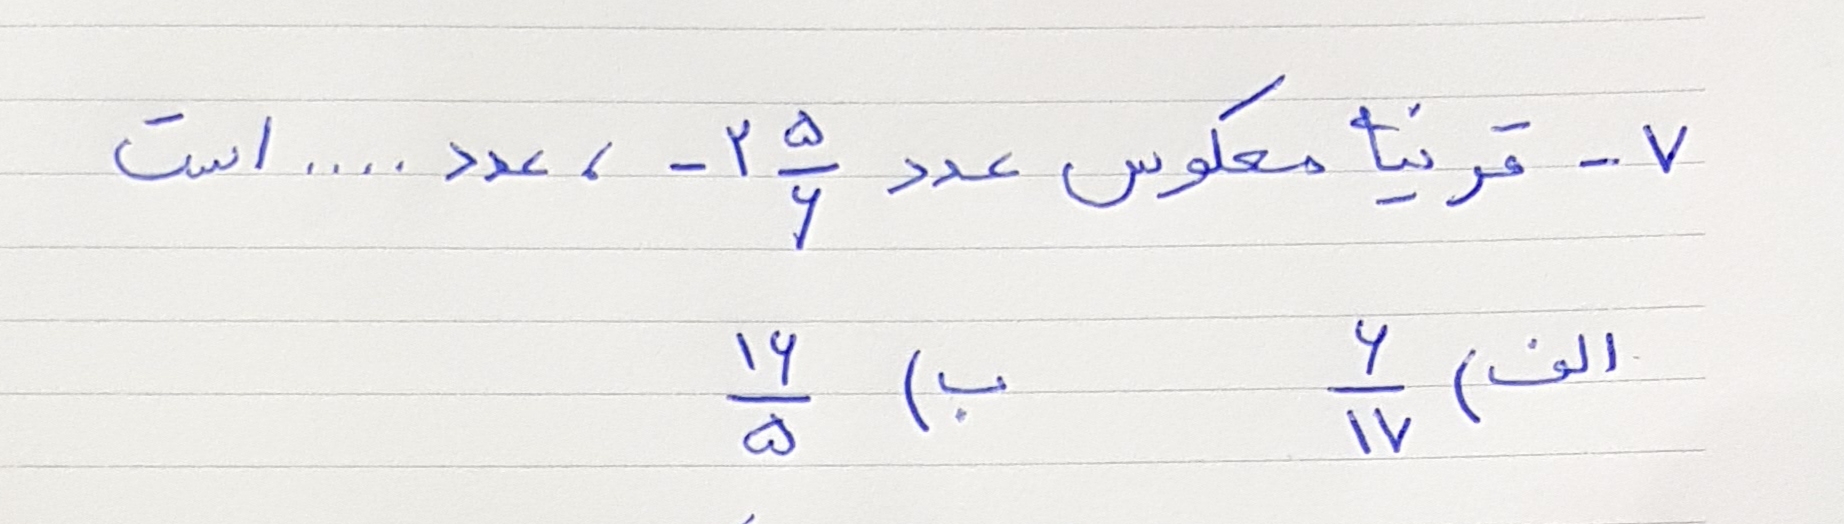 ۷- قرنیهٔ معکوس عدد -۲ ۵/۶ ، عدد .... است
الف) ۶/۱۷ ب) ۱۶/۵